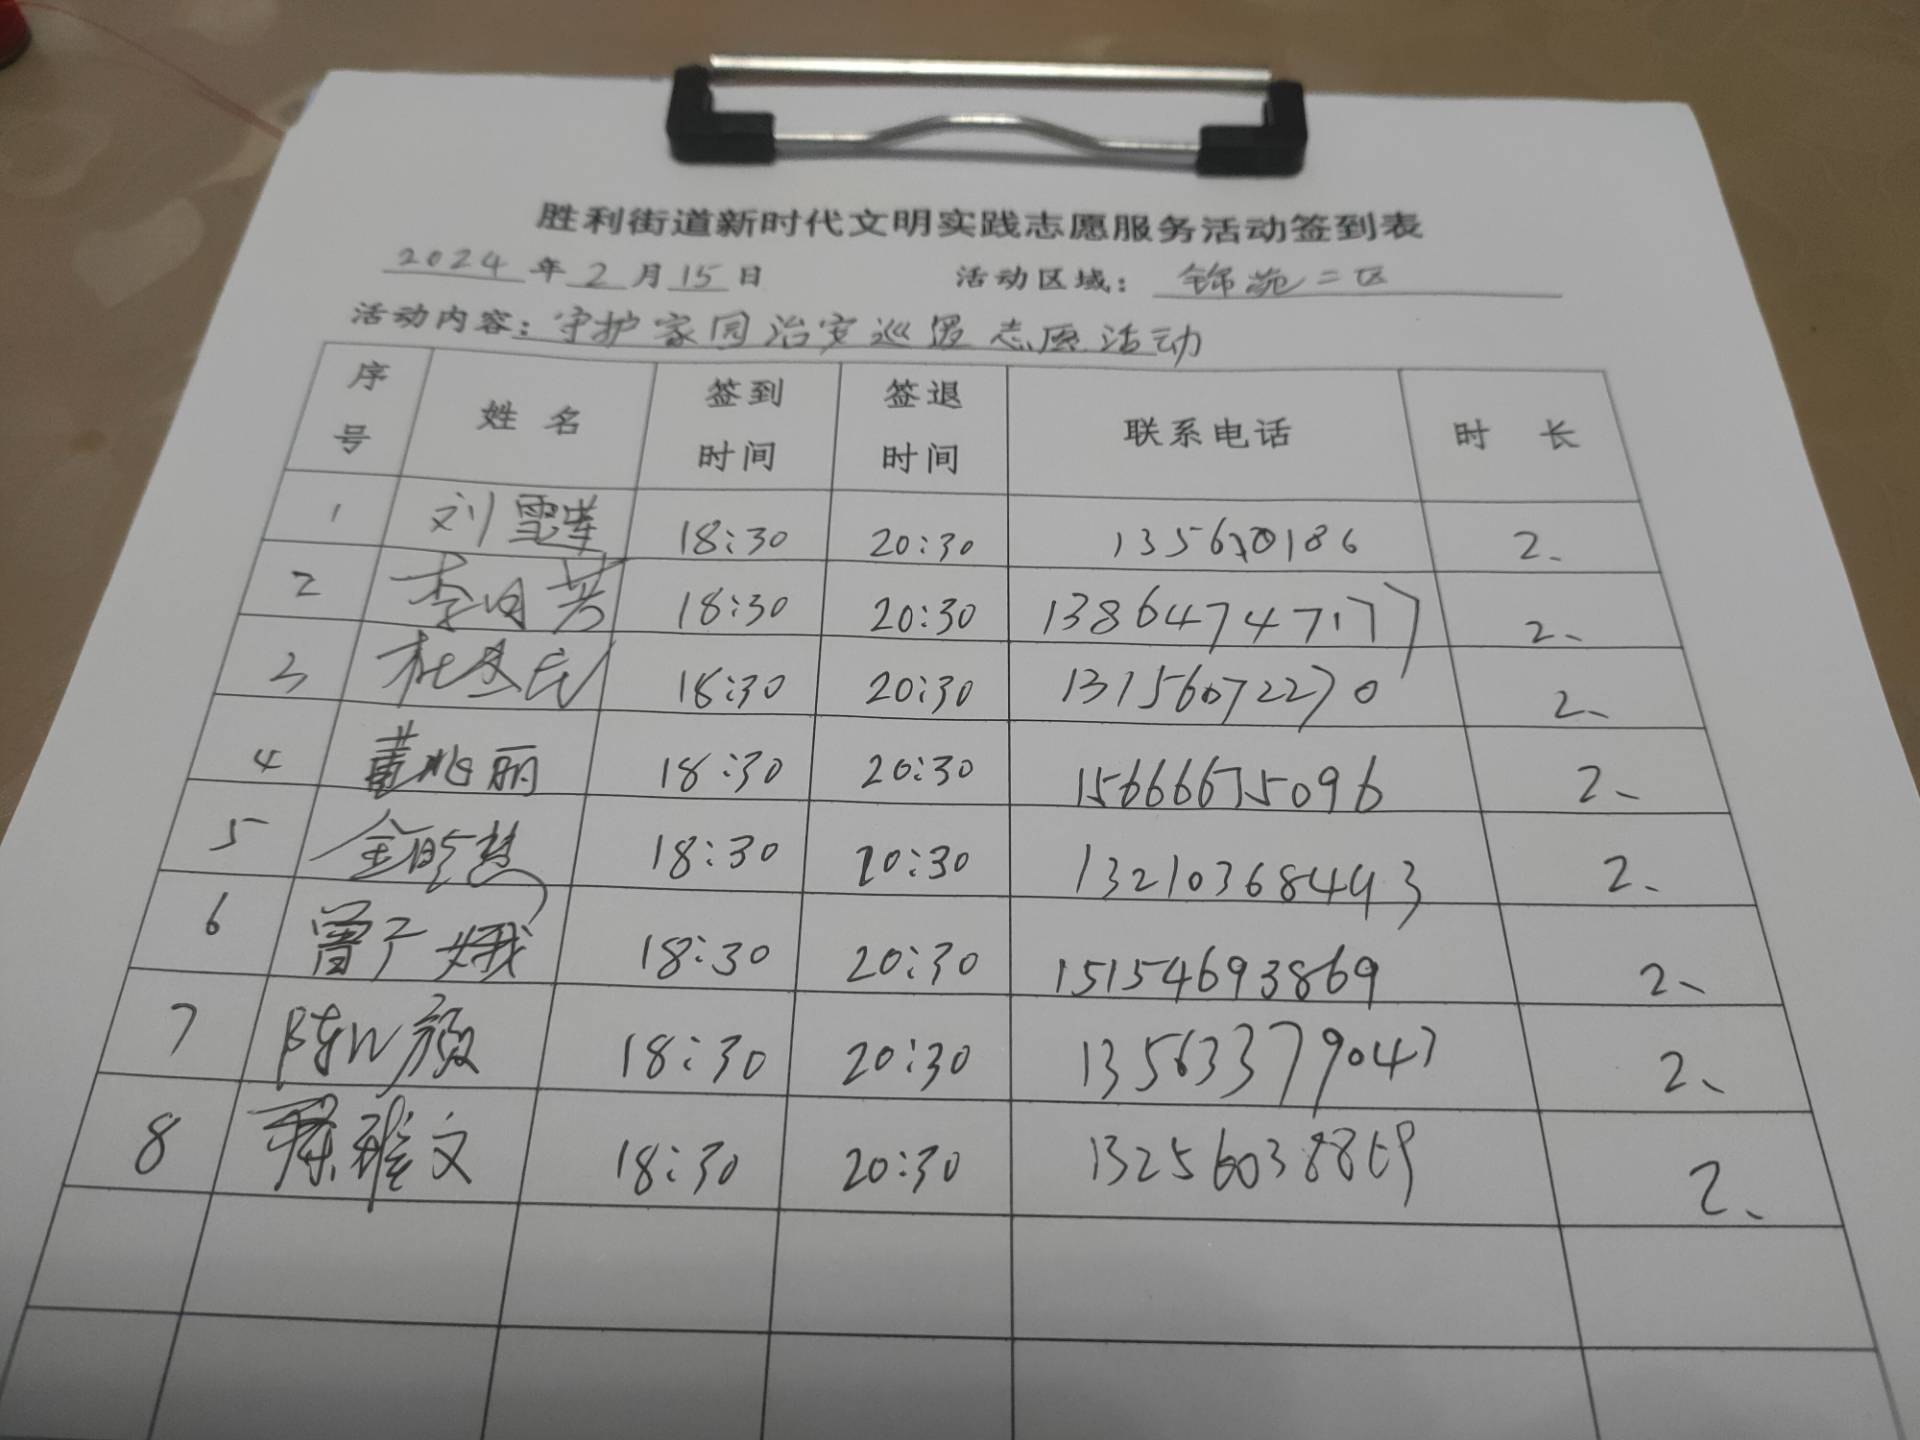 胜利街道新时代文明实践志愿服务活动签到表
2024年2月15日 活动区域：锦苑二区
活动内容：守护家园治安巡逻志愿活动
序号 姓名 签到时间 签退时间 联系电话 时长
1 刘雪莲 18:30 20:30 2、
2 李月芳 18:30 20:30 13864747177 2、
3 18:30 20:30 13156072270 2、
4 董兆丽 18:30 20:30 15666675096 2、
5 18:30 20:30 13210368443 2、
6 曾广娥 18:30 20:30 15154693869 2、
7 18:30 20:30 13563379047 2、
8 陈雅文 18:30 20:30 13256038869 2、